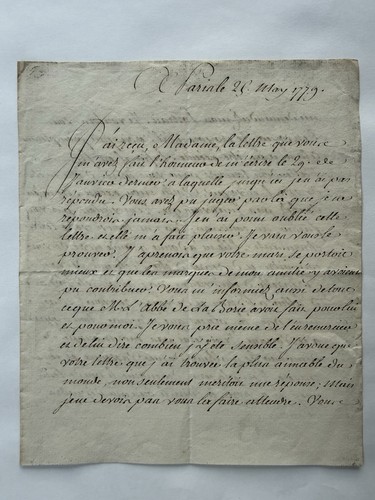 A Paris le 26. May 1779.
J'ai reçu, Madame, la lettre que vous
m'avez fait l'honneur de m'ecrire le 29. de
Janvier dernier à laquelle jusqu'ici je n'ai pas
repondu. Vous avez pu juger par là que je ne
repondrois jamais. Je n'ai point oublié cette
lettre et elle m'a fait plaisir. Je vais vous le
prouver. J'aprenois que votre mari se portoit
mieux et que les marques de mon amitié y avoient
pu contribuer. Vous m'informiez aussi de tout
ce que M. L'Abbé de La Borie avoit fait pour lui
et pour moi. Je vous prie même de l'en remercier
et de lui dire combien j'y ai eté sensible. J'avoue que
votre lettre que j'ai trouvée la plus aimable du
monde, non seulement meritoit une réponse; mais
je ne devois pas vous la faire attendre. Vous